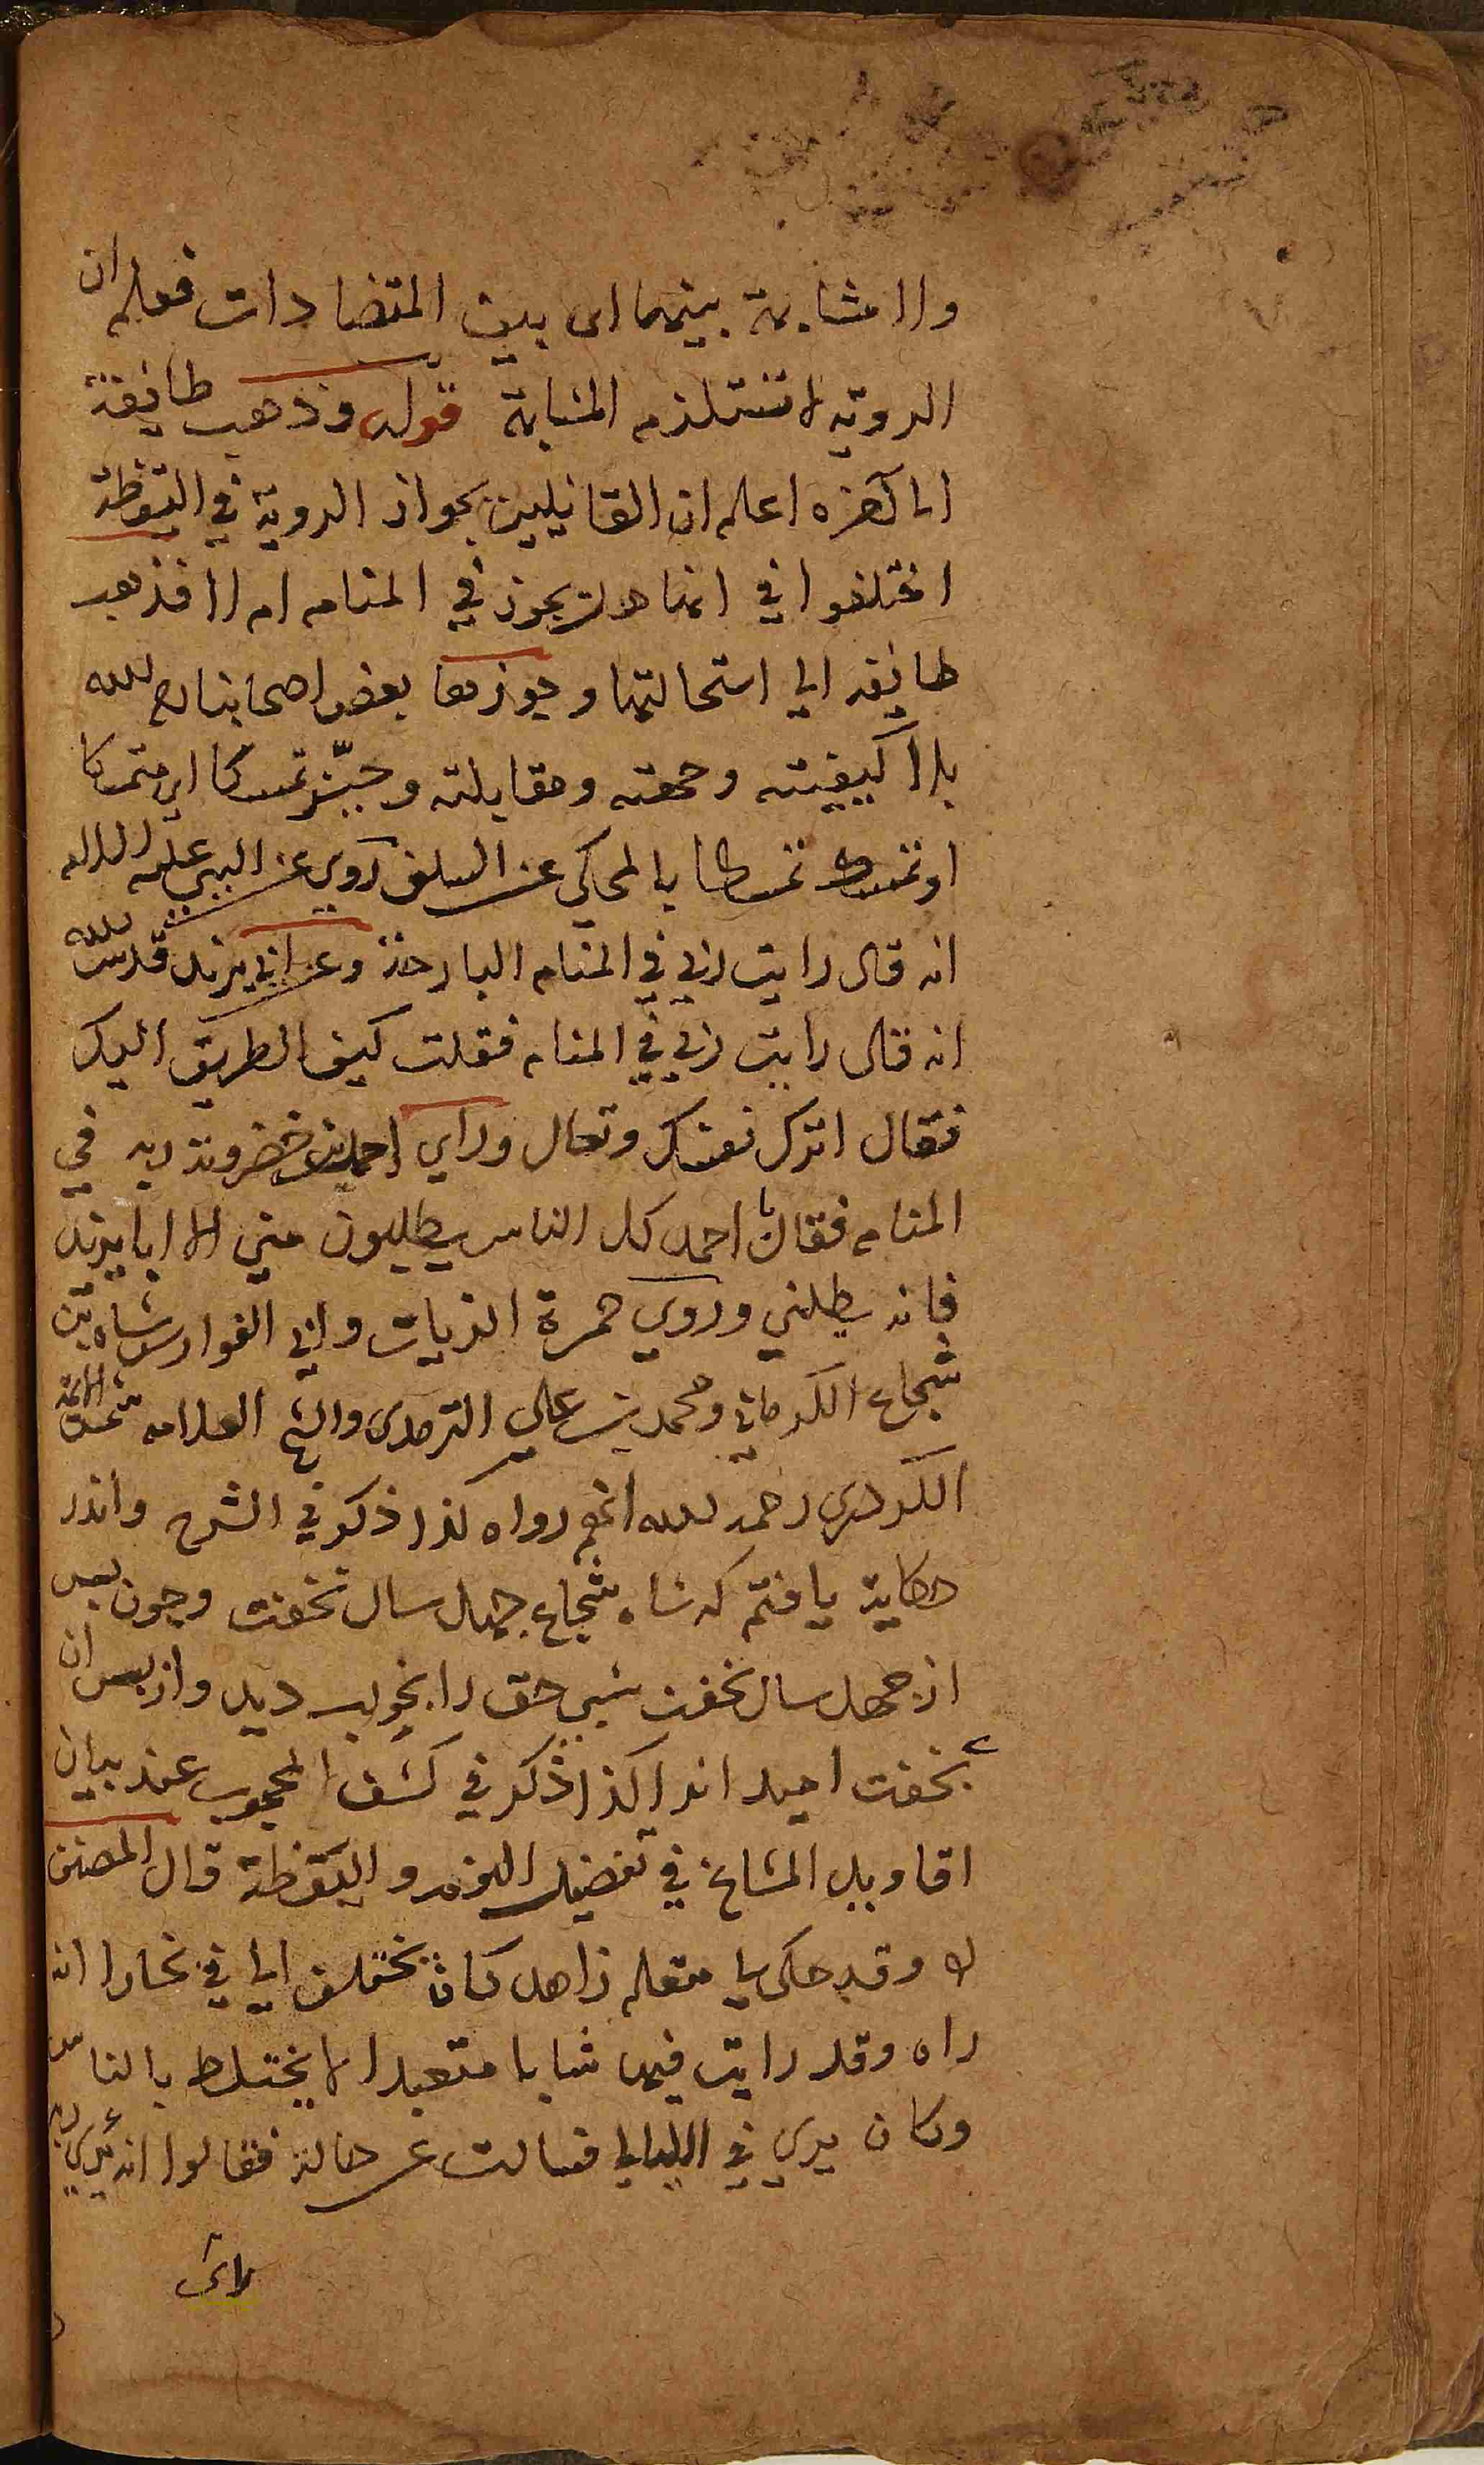 ولا مشابهة بينهما اى بين المتضادات فعلم ان
الروية لا تستلزم المشابهة قوله وذهب طائفة
الى آخره اعلم ان القائلين بجواز الروية في اليقظة
اختلفوا في انها هل يجوز في المنام ام لا فذهب
طائفة الى استحالتها وجوزها بعض اصحابنا رح الله
بلا كيفيته وجهته ومقابلته وتمسكا اى متمسكا
او تمسك تمسكا بالمحكي عن السلف روي عن النبي عليه السلام
انه قال رايت ربي في المنام البارحة وعن ابي يزيد قدس الله
انه قال رايت ربي في المنام فقلت كيف الطريق اليك
فقال اترك نفسك وتعال وراي احمد بن خضرويه ربه في
المنام فقال يا احمد كل الناس يطلبون مني الا ابا يزيد
فانه يطلبني وروي حمزة الزيات وابي الفوارس شاه بن
شجاع الكرماني ومحمد بن علي الترمدى والشيخ العلامه شمس الائمة
الكردرى رحمه الله انهم رواه كذا ذكر في الشرح واندر
حكاية يافتم كه شاه شجاع چهل سال نخفت وچون بعد
از چهل سال بخفت شبي حق را بخواب ديد واز پس ان
بخفت اميد انرا كذا ذكر في كشف المحجوب عند بيان
اقاويل المشايخ في تفضيل النوم و اليقظة قال المصنف
وقد حكى لي متعلم زاهد كان يختلف الي في بخارا انه
راه وقد رايت فيها شابا متعبدا لا يختلط بالناس
وكان يرى في الليالي فسالت عن حاله فقالوا انه يرى